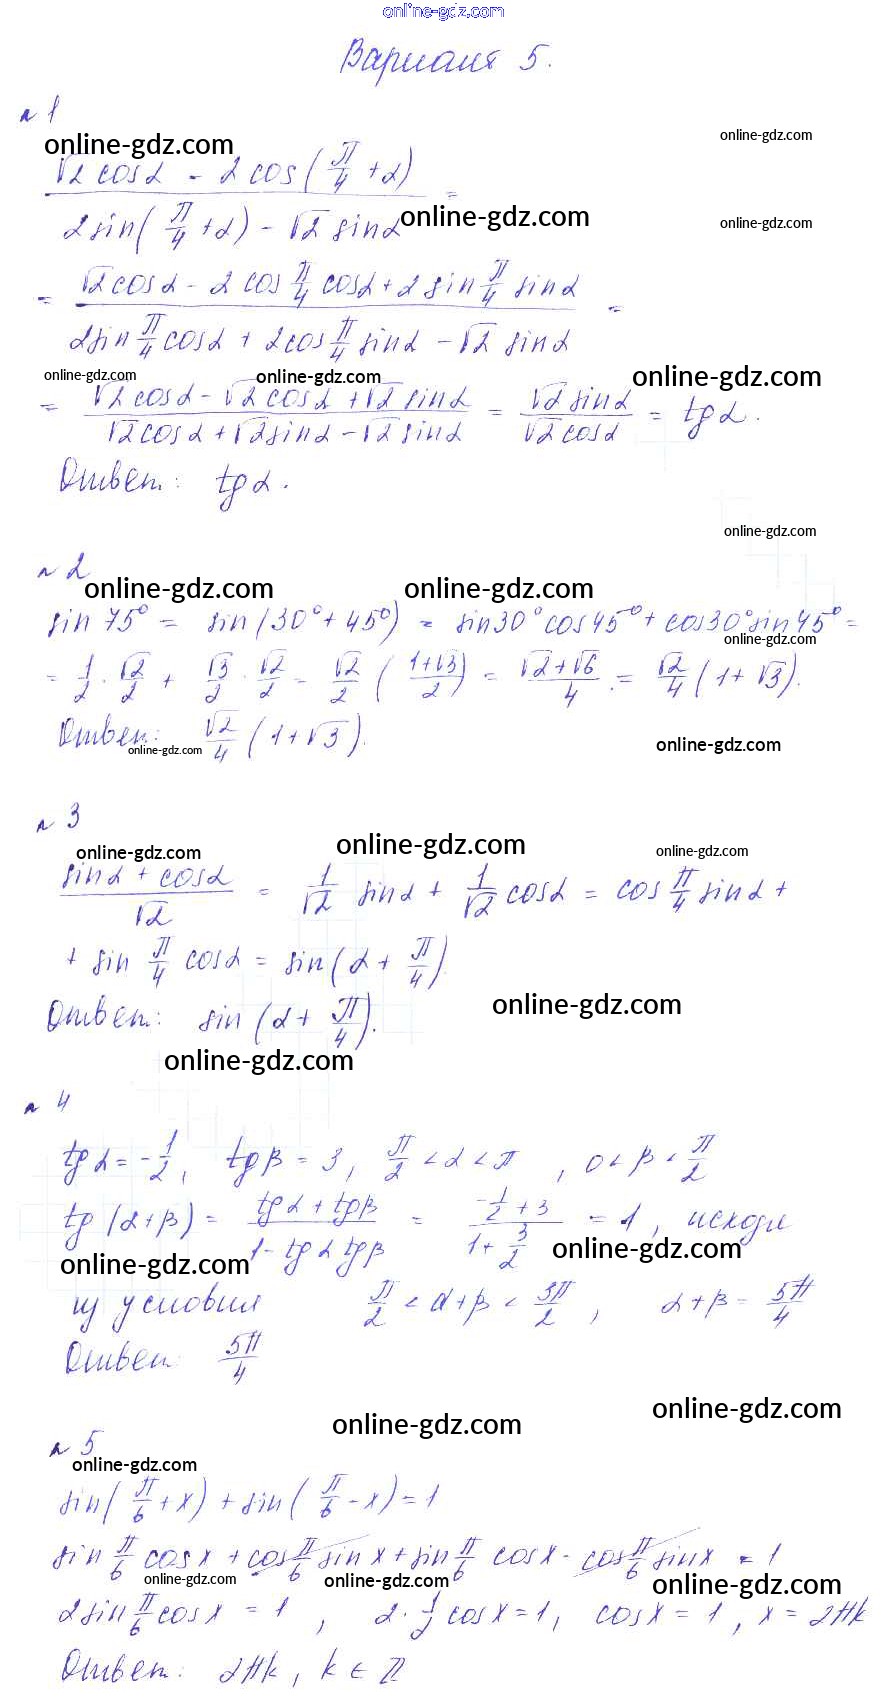 online-gdz.com
Вариант 5.
№ 1
online-gdz.com online-gdz.com
(√2 cosα - 2 cos(π/4 + α)) / (2 sin(π/4 + α) - √2 sinα) =
online-gdz.com online-gdz.com
= (√2 cosα - 2 cos π/4 cosα + 2 sin π/4 sinα) / (2 sin π/4 cosα + 2 cos π/4 sinα - √2 sinα) =
online-gdz.com online-gdz.com online-gdz.com
= (√2 cosα - √2 cosα + √2 sinα) / (√2 cosα + √2 sinα - √2 sinα) = √2 sinα / √2 cosα = tgα.
Ответ: tgα.
online-gdz.com
№ 2
online-gdz.com online-gdz.com
sin 75° = sin(30° + 45°) = sin30° cos45° + cos30° sin45° =
online-gdz.com
= 1/2 · √2/2 + √3/2 · √2/2 = √2/2 ((1+√3)/2) = (√2+√6)/4 = √2/4 (1+√3).
Ответ: √2/4 (1+√3).
online-gdz.com online-gdz.com
№ 3
online-gdz.com online-gdz.com online-gdz.com
(sinα + cosα)/√2 = 1/√2 sinα + 1/√2 cosα = cos π/4 sinα +
+ sin π/4 cosα = sin(α + π/4).
Ответ: sin(α + π/4).
online-gdz.com
online-gdz.com
№ 4
tgα = -1/2, tgβ = 3, π/2 < α < π, 0 < β < π/2
tg(α+β) = (tgα + tgβ)/(1 - tgα tgβ) = (-1/2 + 3)/(1 + 3/2) = 1, исходя
online-gdz.com online-gdz.com
из условия π/2 < α+β < 3π/2, α+β = 5π/4
Ответ: 5π/4
online-gdz.com online-gdz.com
№ 5
online-gdz.com
sin(π/6 + x) + sin(π/6 - x) = 1
sin π/6 cos x + cos π/6 sin x + sin π/6 cos x - cos π/6 sin x = 1
online-gdz.com online-gdz.com online-gdz.com
2 sin π/6 cos x = 1, 2 · 1/2 cos x = 1, cos x = 1, x = 2πk
Ответ: 2πk, k ∈ Z